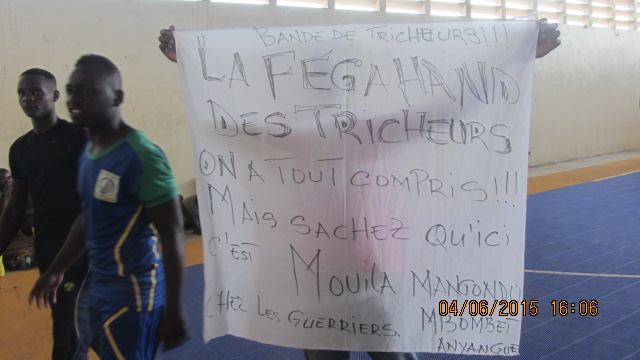 BANDE DE TRICHEURS!!!
LA FÉGAHAND
DES TRICHEURS
ON A TOUT COMPRIS!!!
MAIS SACHEZ QU'ICI
C'EST MOUILA MANGONDU
CHEZ LES GUERRIERS. MBOMBET
ANYANGUE
04/06/2015 16:06